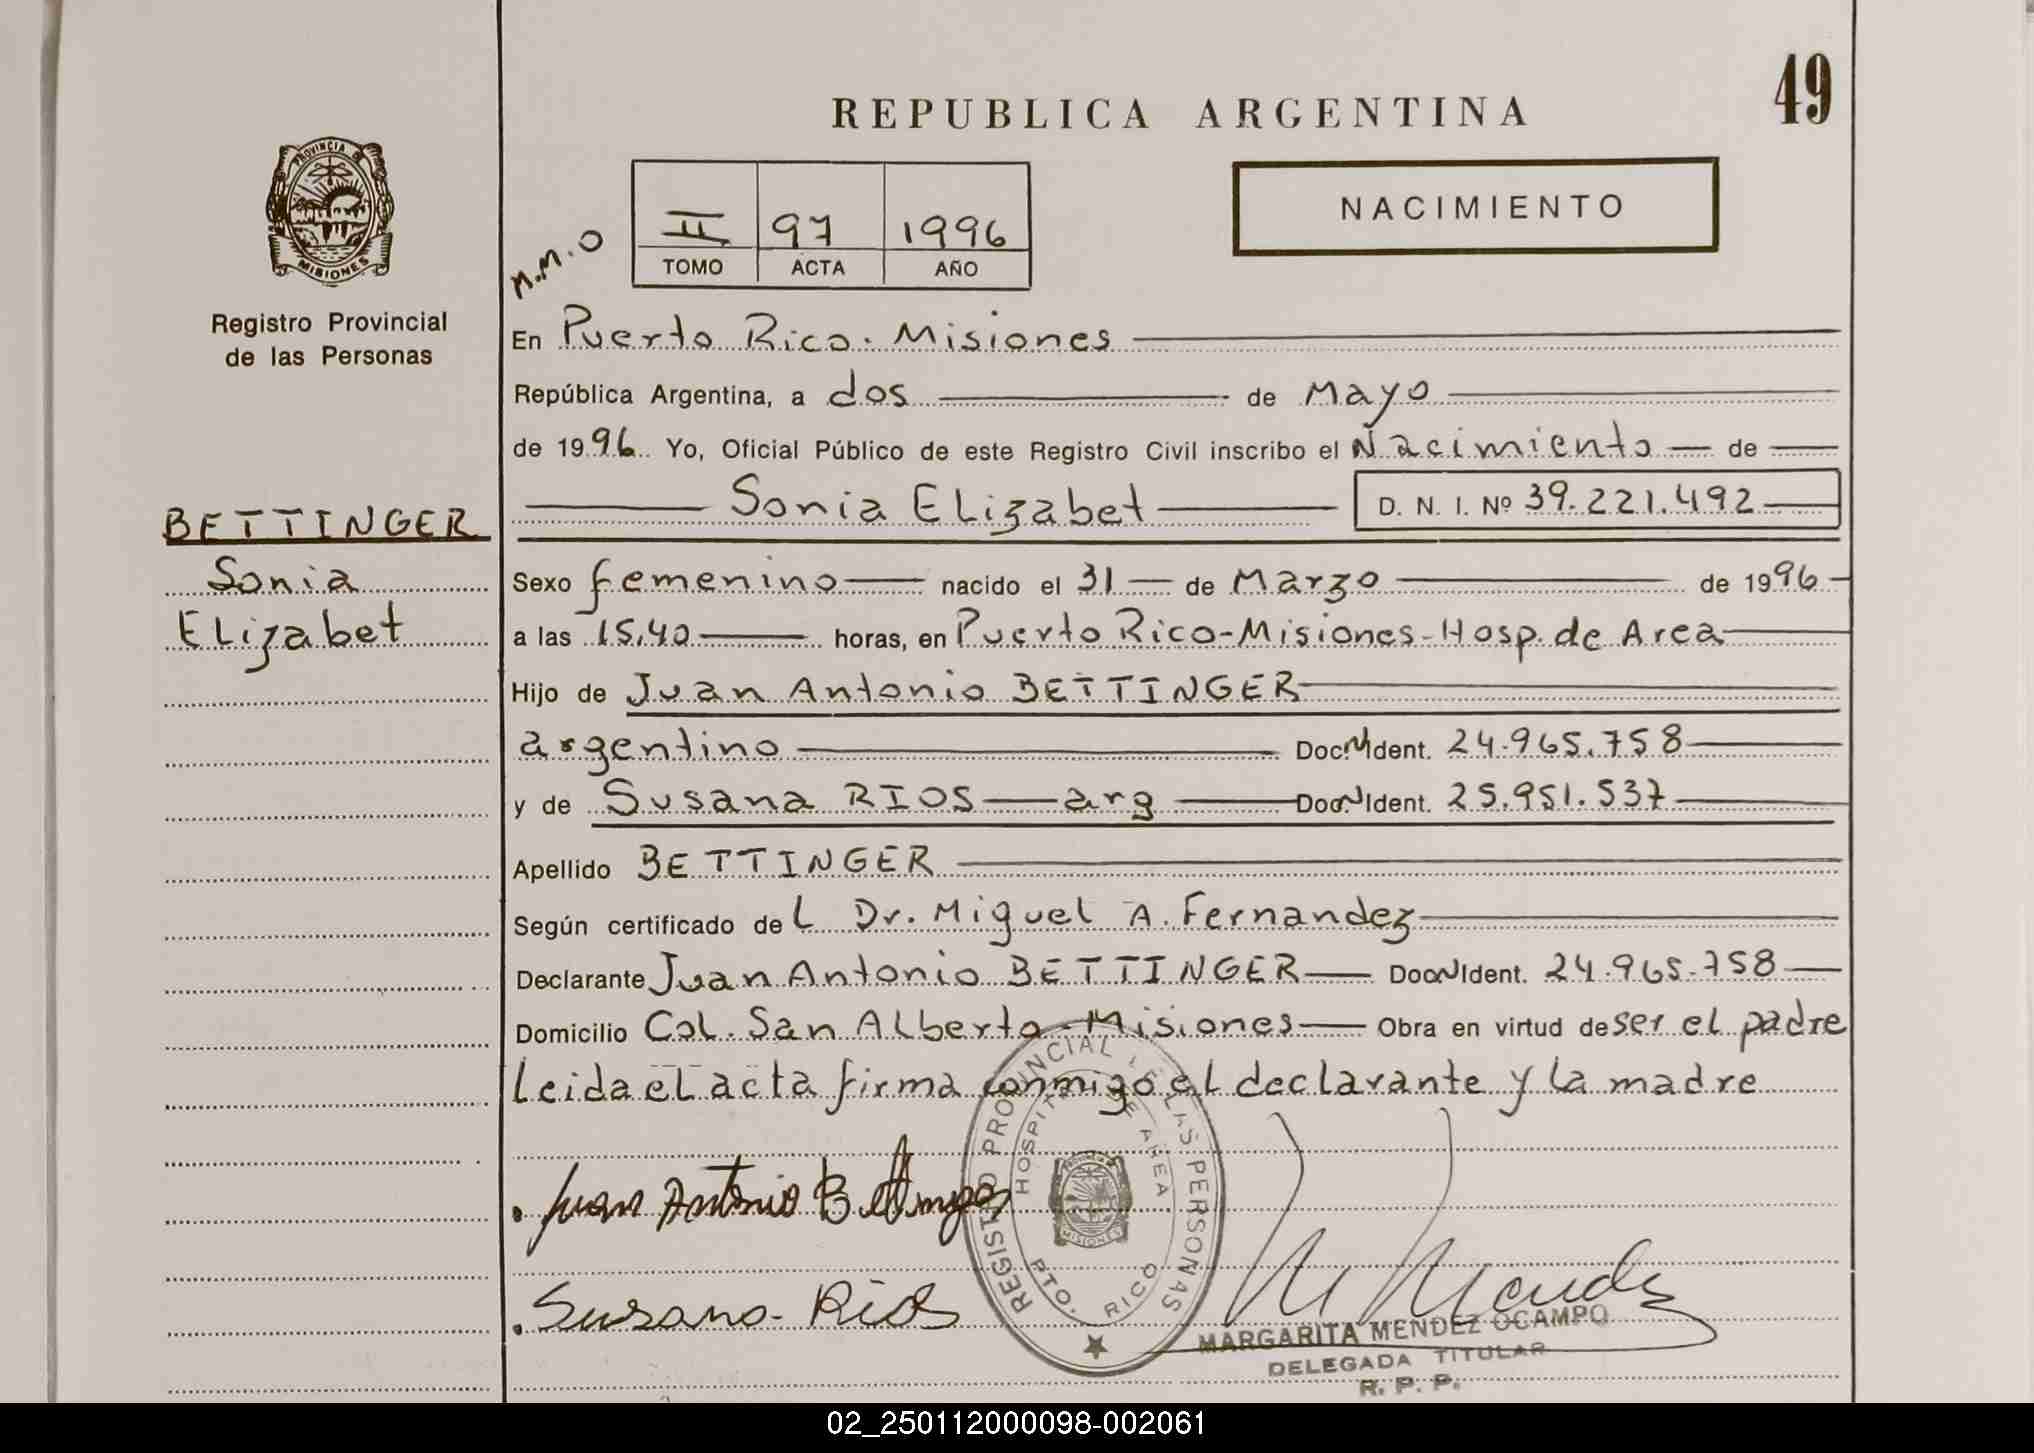 49
REPUBLICA ARGENTINA
PROVINCIA DE
MISIONES
Registro Provincial
de las Personas
NACIMIENTO
M.M.O
II 97 1996
TOMO ACTA AÑO
En Puerto Rico. Misiones
República Argentina, a dos de Mayo
de 1996. Yo, Oficial Público de este Registro Civil inscribo el Nacimiento de
Sonia Elizabet D. N. I. Nº 39.221.492
BETTINGER
Sonia
Elizabet
Sexo femenino nacido el 31 de Marzo de 1996
a las 15.40 horas, en Puerto Rico-Misiones-Hosp. de Area
Hijo de Juan Antonio BETTINGER
argentino Doc. N Ident. 24.965.758
y de Susana RIOS arg Doc N Ident. 25.951.537
Apellido BETTINGER
Según certificado del Dr. Miguel A. Fernandez
Declarante Juan Antonio BETTINGER Doc N Ident. 24.965.758
Domicilio Col. San Alberto-Misiones Obra en virtud de ser el padre
Leida el acta firma conmigo el declarante y la madre
Juan Antonio Bettinger
Susana Rios
REGISTRO PROVINCIAL DE LAS PERSONAS
HOSPITAL DE AREA
MISIONES
PTO. RICO
M Mendez
MARGARITA MENDEZ OCAMPO
DELEGADA TITULAR
R. P. P.
02_250112000098-002061